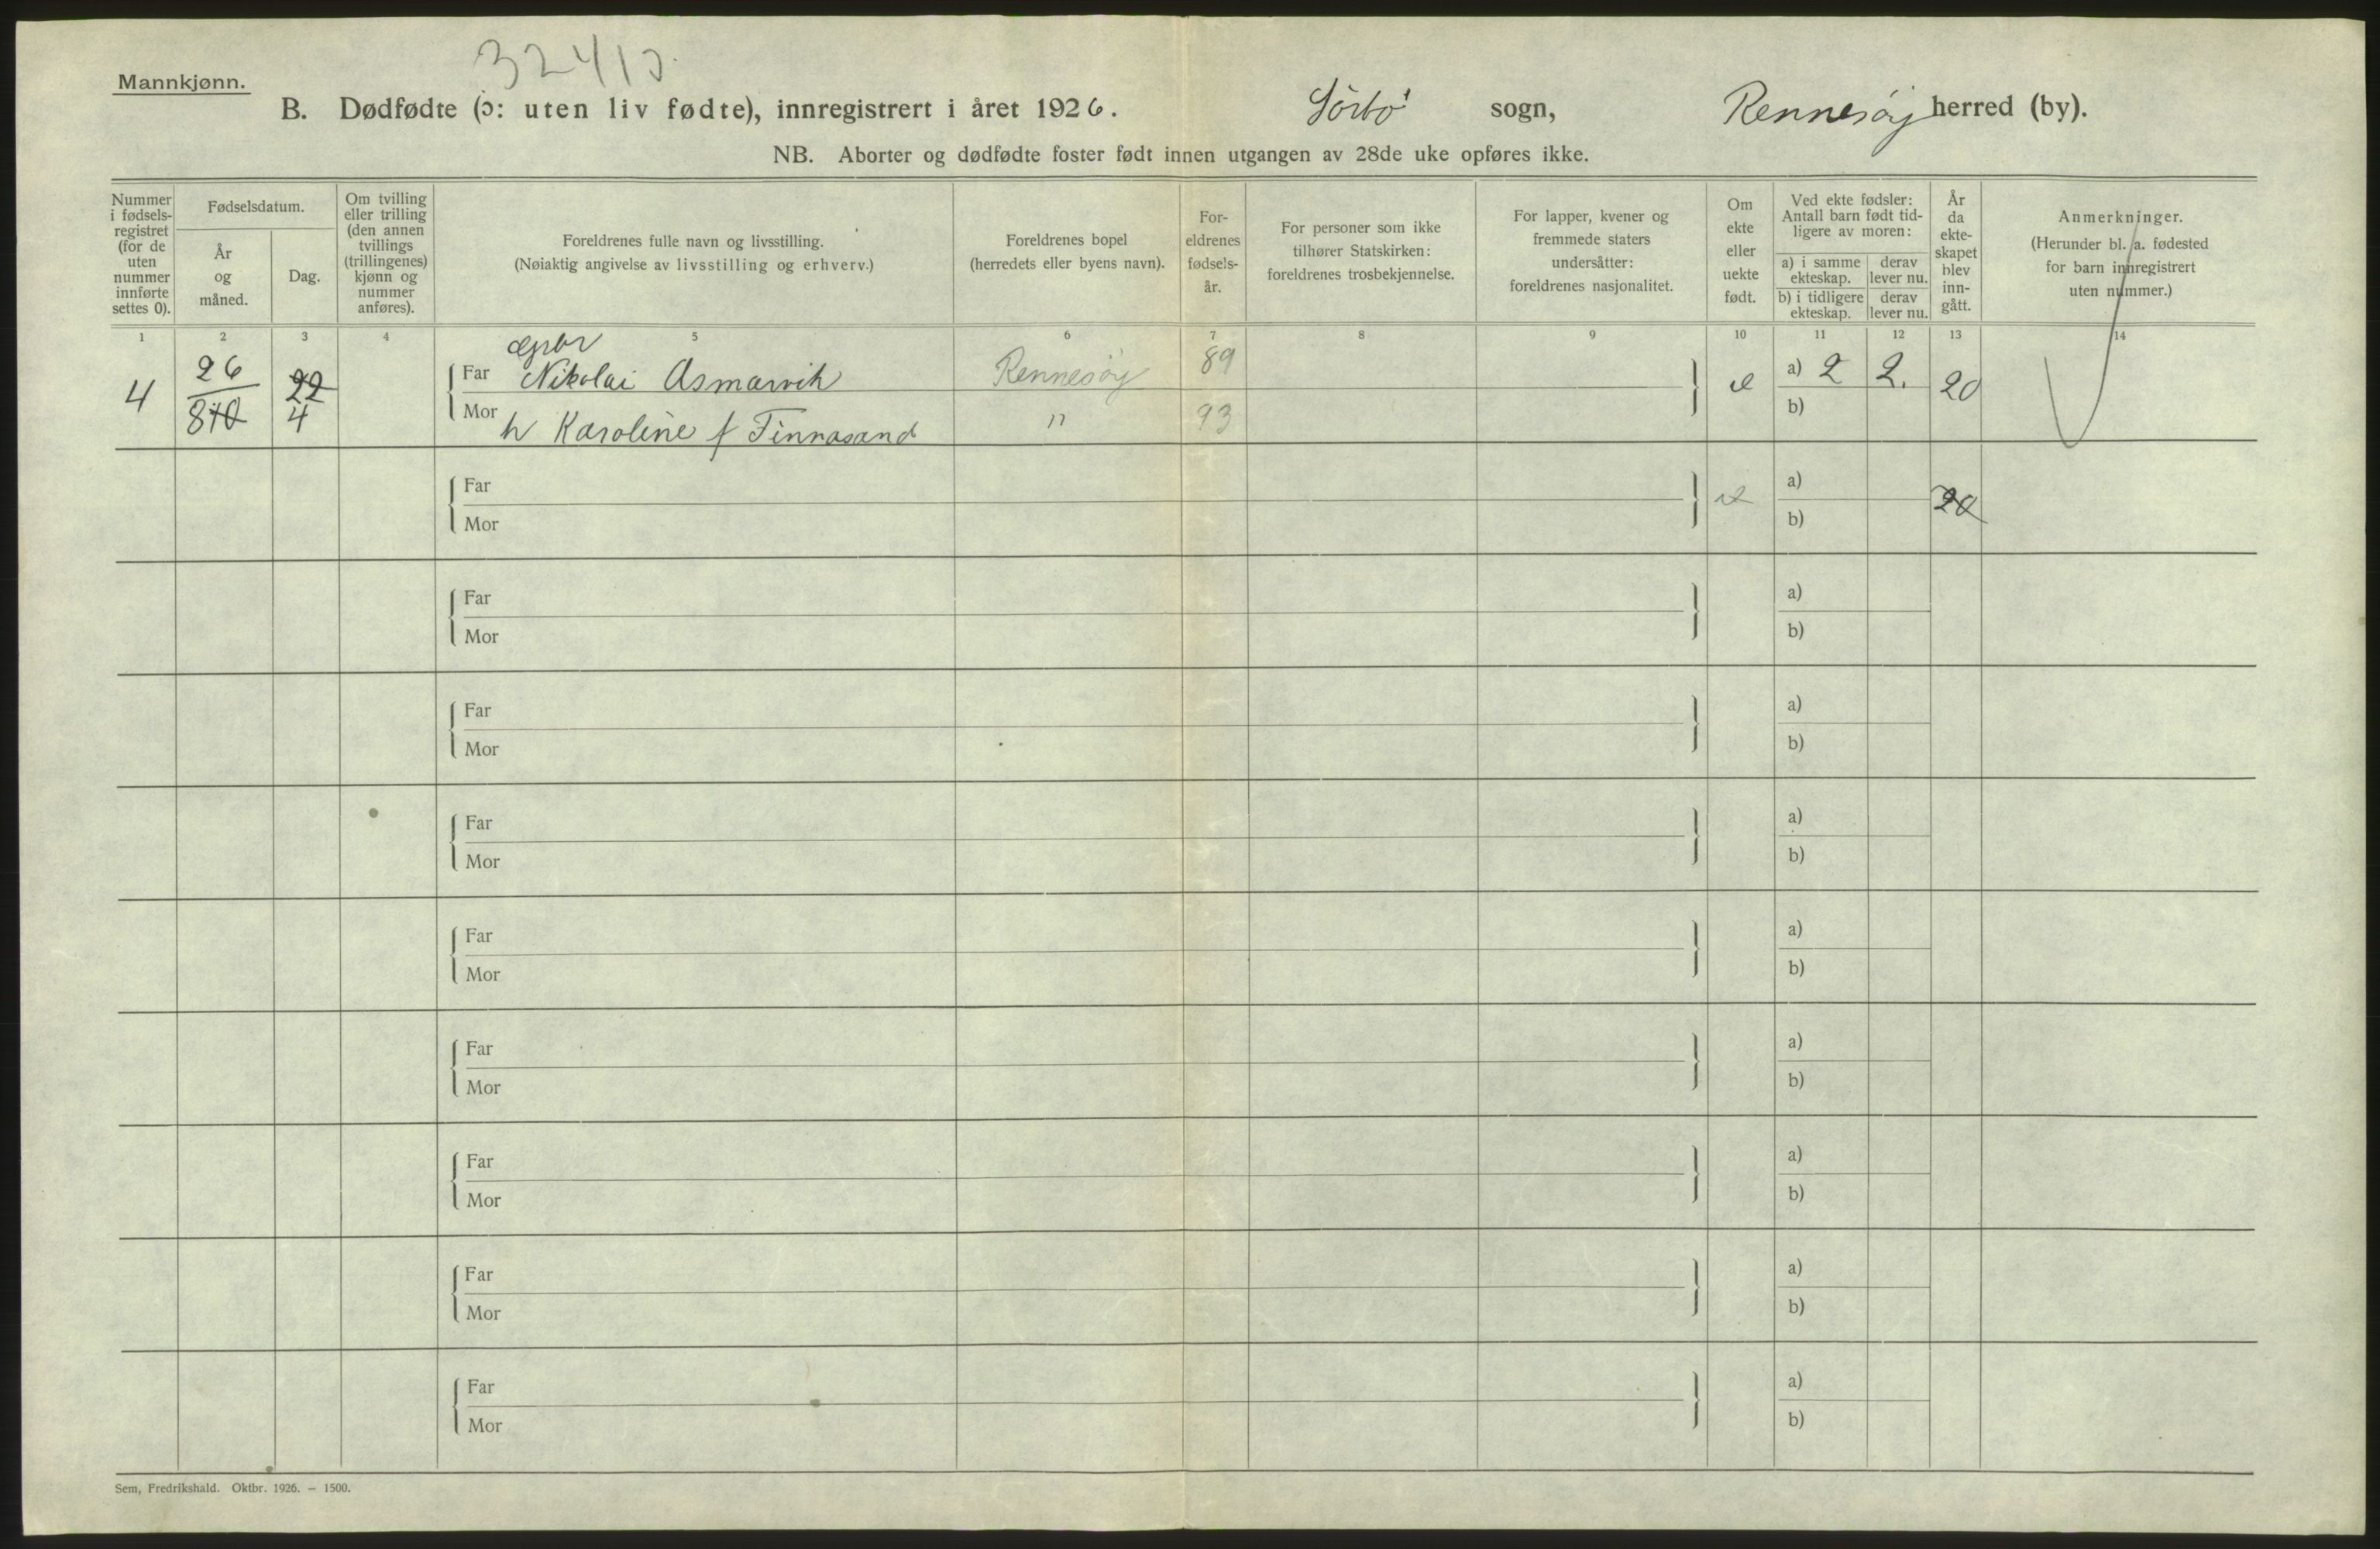 32413
Mannkjønn.
B. Dødfødte (ɔ: uten liv fødte), innregistrert i året 1926. Sörbö sogn, Rennesöy herred (by).
NB. Aborter og dødfødte foster født innen utgangen av 28de uke opføres ikke.
Nummer i fødsels-registret (for de uten nummer innførte settes 0).
Fødselsdatum.
År og måned.
Dag.
Om tvilling eller trilling (den annen tvillings (trillingenes) kjønn og nummer anføres).
Foreldrenes fulle navn og livsstilling.
(Nøiaktig angivelse av livsstilling og erhverv.)
Foreldrenes bopel
(herredets eller byens navn).
For-eldrenes fødsels-år.
For personer som ikke tilhører Statskirken: foreldrenes trosbekjennelse.
For lapper, kvener og fremmede staters undersåtter: foreldrenes nasjonalitet.
Om ekte eller uekte født.
Ved ekte fødsler: Antall barn født tid-ligere av moren:
a) i samme ekteskap. derav lever nu.
b) i tidligere ekteskap. derav lever nu.
År da ekte-skapet blev inn-gått.
Anmerkninger.
(Herunder bl. a. fødested for barn innregistrert uten nummer.)
1 2 3 4 5 6 7 8 9 10 11 12 13 14
4 26 22 Far Nikolai Asmarvik Rennesöy 89 e a) 2 2. 20
810 4 Mor h Karoline f Finnasand " 93 b)
Far e a) 20
Mor b)
Far a)
Mor b)
Far a)
Mor b)
Far a)
Mor b)
Far a)
Mor b)
Far a)
Mor b)
Far a)
Mor b)
Far a)
Mor b)
Far a)
Mor b)
Sem, Fredrikshald. Oktbr. 1926. — 1500.